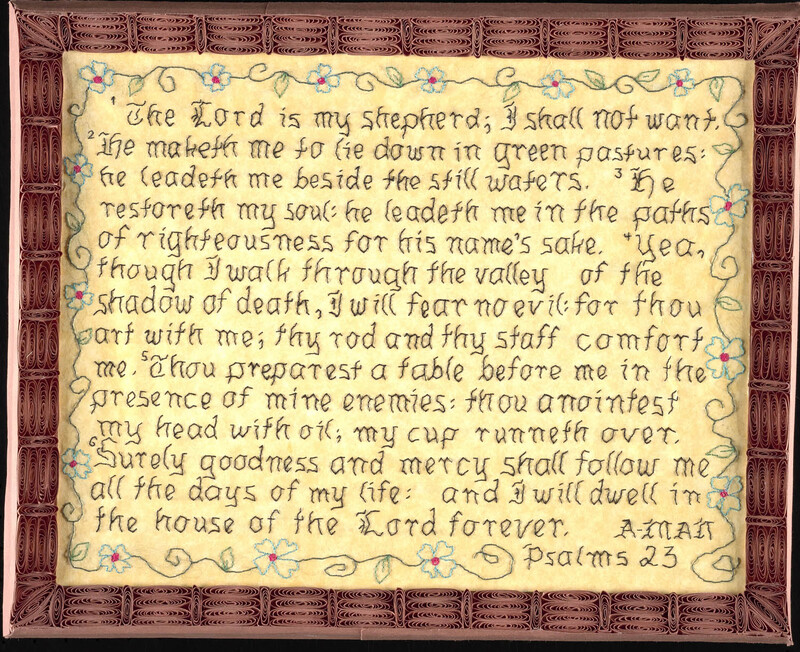 1 The Lord is my shepherd; I shall not want.
2 He maketh me to lie down in green pastures:
he leadeth me beside the still waters. 3 He
restoreth my soul: he leadeth me in the paths
of righteousness for his name's sake. 4 Yea,
though I walk through the valley of the
shadow of death, I will fear no evil: for thou
art with me; thy rod and thy staff comfort
me. 5 Thou preparest a table before me in the
presence of mine enemies: thou anointest
my head with oil; my cup runneth over.
6 Surely goodness and mercy shall follow me
all the days of my life: and I will dwell in
the house of the Lord forever. A-MAN
Psalms 23